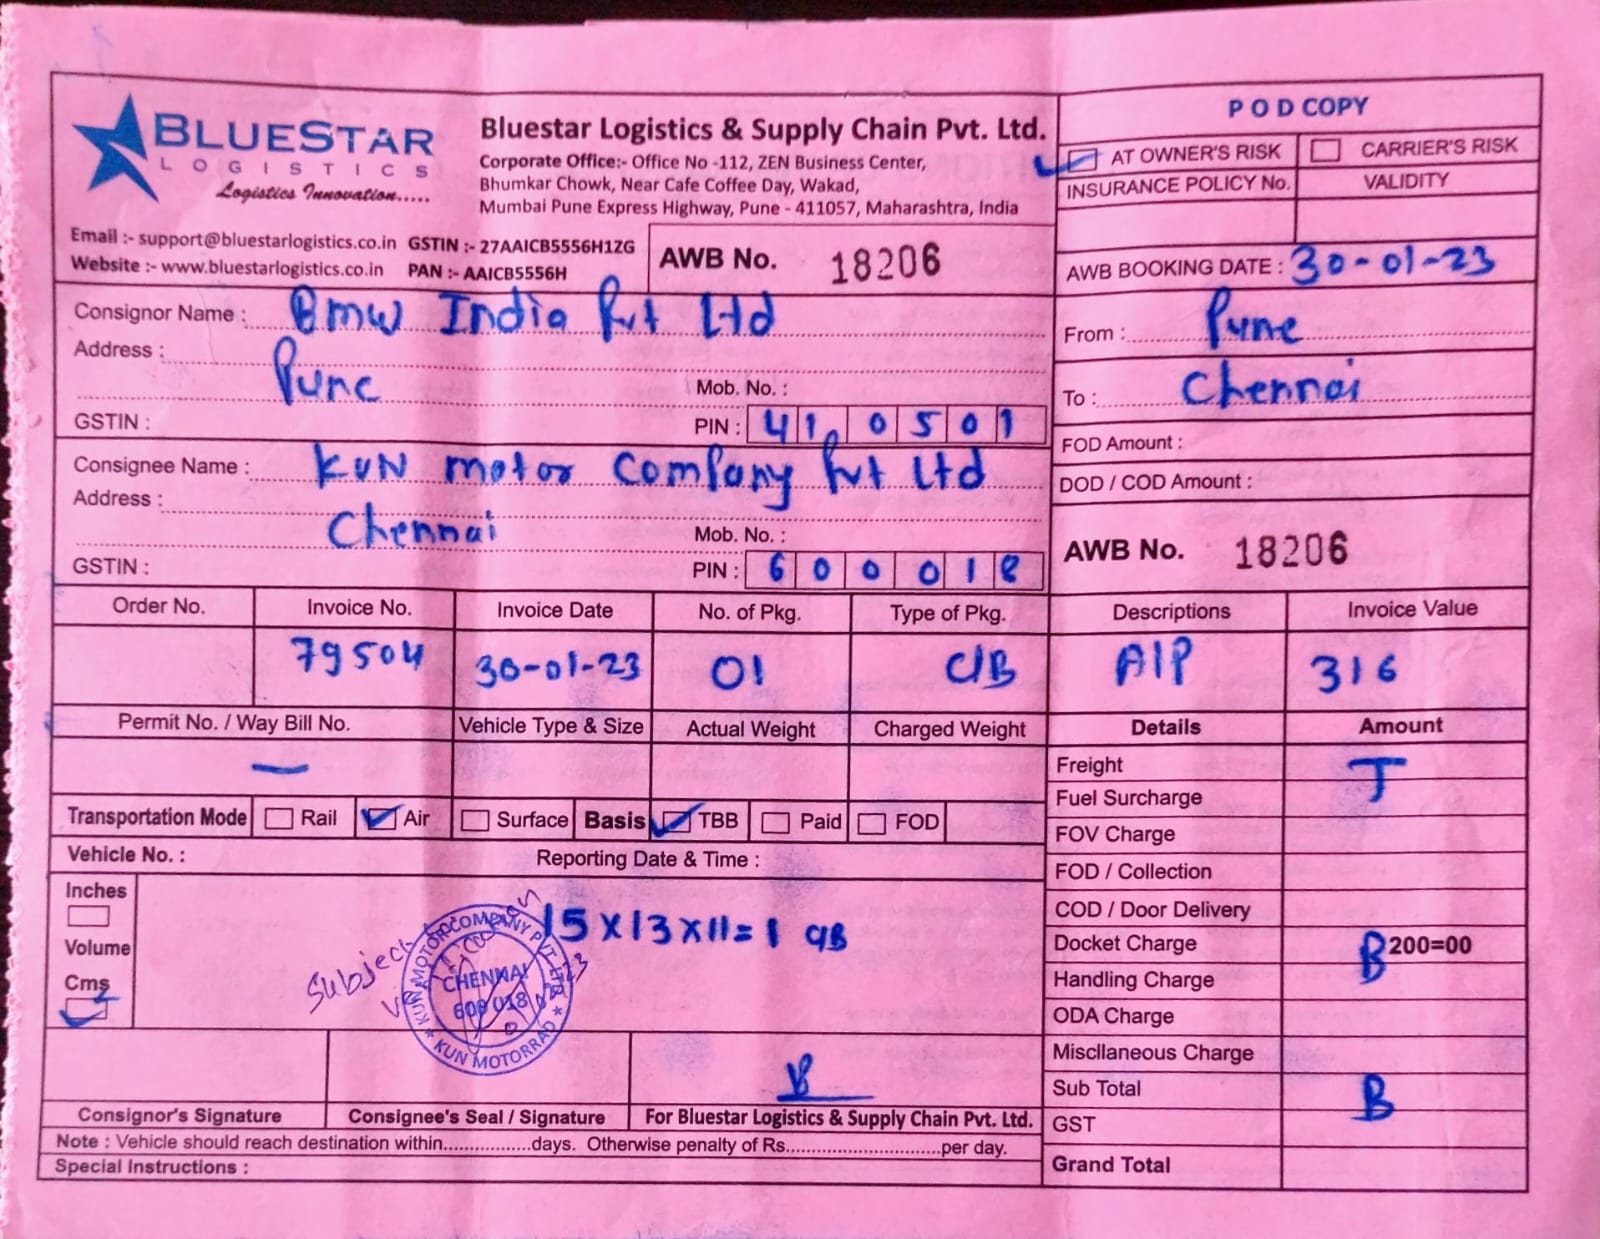 BLUESTAR
LOGISTICS
Logistics Innovation.....
Bluestar Logistics & Supply Chain Pvt. Ltd.
Corporate Office:- Office No -112, ZEN Business Center,
Bhumkar Chowk, Near Cafe Coffee Day, Wakad,
Mumbai Pune Express Highway, Pune - 411057, Maharashtra, India
Email :- support@bluestarlogistics.co.in GSTIN :- 27AAICB5556H1ZG
Website :- www.bluestarlogistics.co.in PAN :- AAICB5556H
AWB No. 18206
POD COPY
AT OWNER'S RISK CARRIER'S RISK
INSURANCE POLICY No. VALIDITY
AWB BOOKING DATE : 30-01-23
Consignor Name : BMW India Pvt Ltd
Address :
Pune
Mob. No. :
GSTIN : PIN : 410501
From : Pune
To : Chennai
FOD Amount :
DOD / COD Amount :
Consignee Name : KUN motor Company Pvt Ltd
Address :
Chennai
Mob. No. :
GSTIN : PIN : 600018
AWB No. 18206
Order No. Invoice No. Invoice Date No. of Pkg. Type of Pkg. Descriptions Invoice Value
79504 30-01-23 01 C/B A/P 316
Permit No. / Way Bill No. Vehicle Type & Size Actual Weight Charged Weight Details Amount
Freight
Fuel Surcharge
FOV Charge
FOD / Collection
COD / Door Delivery
Docket Charge 200=00
Handling Charge
ODA Charge
Miscllaneous Charge
Sub Total
GST
Grand Total
T
B
B
Transportation Mode Rail Air Surface Basis TBB Paid FOD
Vehicle No. : Reporting Date & Time :
Inches
Volume
Cms
15 X 13 X 11 = 1
Subject
KUN MOTOR COMPANY PVT. LTD.
CHENNAI
600 018
KUN MOTORRAD
Consignor's Signature Consignee's Seal / Signature For Bluestar Logistics & Supply Chain Pvt. Ltd.
Note : Vehicle should reach destination within.................days. Otherwise penalty of Rs..............................per day.
Special Instructions :